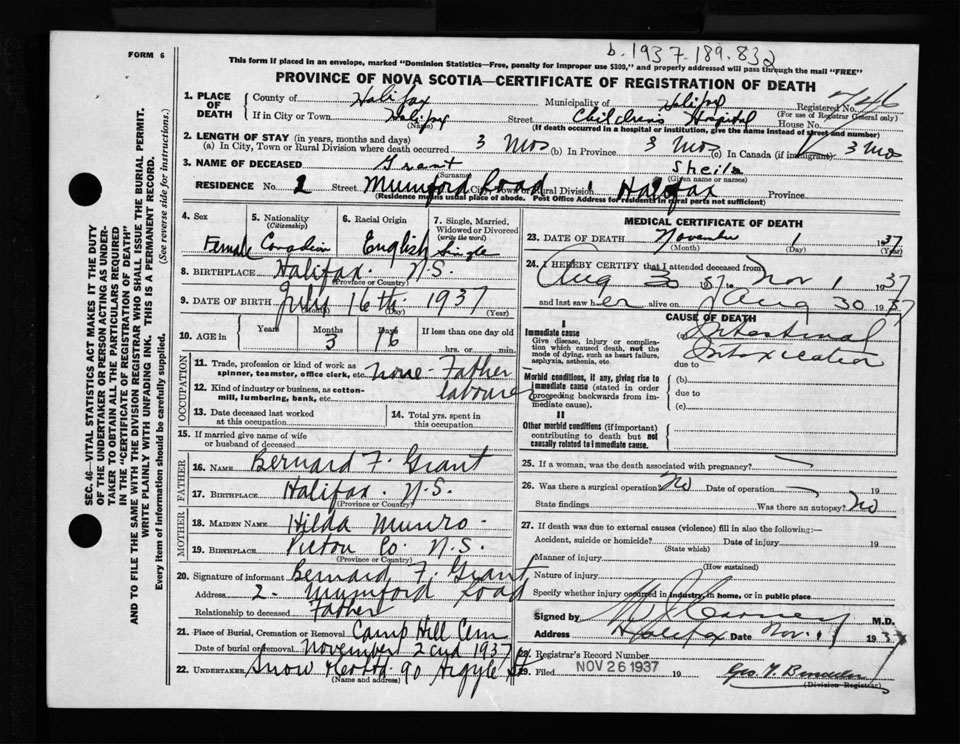 b. 1937.189.832
FORM 6
This form if placed in an envelope, marked "Dominion Statistics—Free, penalty for improper use $300," and properly addressed will pass through the mail "FREE"
PROVINCE OF NOVA SCOTIA—CERTIFICATE OF REGISTRATION OF DEATH
SEC. 46— VITAL STATISTICS ACT MAKES IT THE DUTY
OF THE UNDERTAKER OR PERSON ACTING AS UNDER-
TAKER TO OBTAIN ALL THE PARTICULARS REQUIRED
IN THE "CERTIFICATE OF REGISTRATION OF DEATH"
AND TO FILE THE SAME WITH THE DIVISION REGISTRAR WHO SHALL ISSUE THE BURIAL PERMIT.
WRITE PLAINLY WITH UNFADING INK. THIS IS A PERMANENT RECORD.
Every item of information should be carefully supplied. (See reverse side for instructions.)
1. PLACE OF DEATH County of Halifax Municipality of Halifax Registered No. 746
(For use of Registrar General only)
If in City or Town Halifax Street Childrens Hospital House No.
(Name) (If death occurred in a hospital or institution, give the name instead of street and number)
2. LENGTH OF STAY (in years, months and days)
(a) In City, Town or Rural Division where death occurred 3 mos (b) In Province 3 mos (c) In Canada (if immigrant) 3 mos
3. NAME OF DECEASED Grant Sheila
(Surname) (Given name or names)
RESIDENCE No. 2 Street Mumford Road City, Town or Rural Division Halifax Province
(Residence means usual place of abode. Post Office Address for residents in rural parts not sufficient)
4. Sex 5. Nationality (Citizenship) 6. Racial Origin 7. Single, Married, Widowed or Divorced (write the word)
Female Canadian English Single
8. BIRTHPLACE Halifax. N.S.
(Province or Country)
9. DATE OF BIRTH July 16th 1937
(Month) (Day) (Year)
10. AGE in Years Months Days If less than one day old
3 16 hrs. or min.
OCCUPATION
11. Trade, profession or kind of work as spinner, teamster, office clerk, etc. none - Father
12. Kind of industry or business, as cotton-mill, lumbering, bank, etc. labourer
13. Date deceased last worked at this occupation
14. Total yrs. spent in this occupation
15. If married give name of wife or husband of deceased
FATHER
16. NAME Bernard F. Grant
17. BIRTHPLACE Halifax. N.S.
(Province or Country)
MOTHER
18. MAIDEN NAME Hilda Munro
19. BIRTHPLACE Pictou Co. N.S.
(Province or Country)
20. Signature of informant Bernard F. Grant
Address 2 - Mumford Road
Relationship to deceased Father
21. Place of Burial, Cremation or Removal Camp Hill Cem
Date of burial or removal November 2nd 1937
22. UNDERTAKER Snow 90 Argyle St
(Name and address)
MEDICAL CERTIFICATE OF DEATH
23. DATE OF DEATH November 1 1937
(Month) (Day) (Year)
24. I HEREBY CERTIFY that I attended deceased from
Aug 30 37 to Nov 1 1937
and last saw her alive on Aug 30 1937
CAUSE OF DEATH
I
Immediate cause
Give disease, injury or complication which caused death, not the mode of dying, such as heart failure, asphyxia, asthenia, etc.
(a) Intestinal
Intoxication
due to
Morbid conditions, if any, giving rise to immediate cause (stated in order proceeding backwards from immediate cause).
(b)
due to
(c)
II
Other morbid conditions (if important) contributing to death but not causally related to immediate cause.
25. If a woman, was the death associated with pregnancy?
26. Was there a surgical operation? No Date of operation 19
State findings Was there an autopsy? No
27. If death was due to external causes (violence) fill in also the following:—
Accident, suicide or homicide? Date of injury 19
(State which)
Manner of injury
(How sustained)
Nature of injury
Specify whether injury occurred in industry, in home, or in public place
Signed by M.D.
Address Halifax Date Nov. 1 1937
28. Registrar's Record Number
NOV 26 1937
29. Filed 19
(Division Registrar)